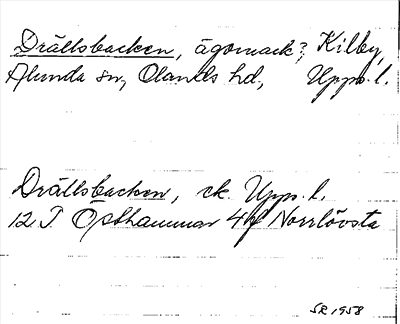 Drällsbacken, ägomark?, Kilby,
Alunda sn, Olands hd, Upps. l.
Drällsbacken, ek. Upps. l.
12 I. Östhammar 4 f Norrlövsta
SR 1958